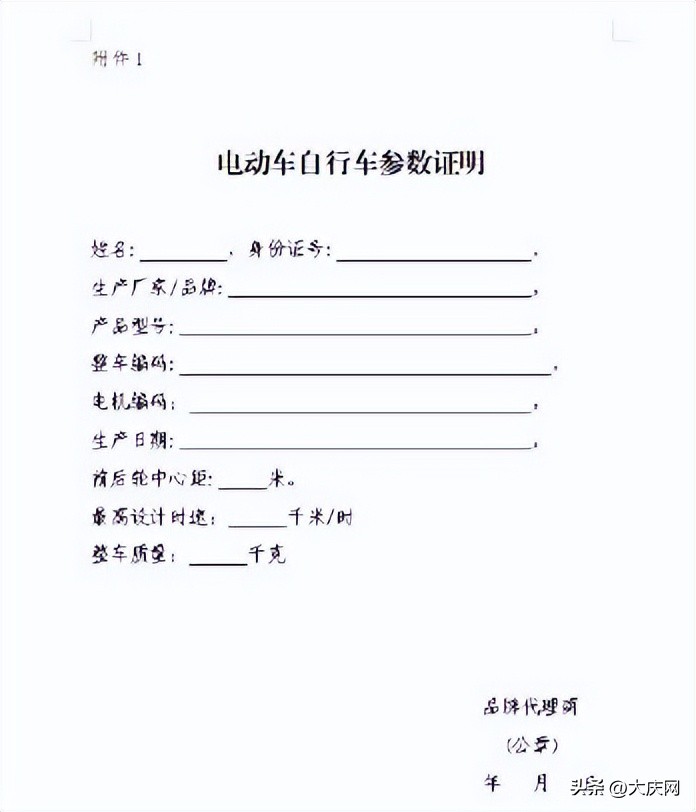 附件1
电动车自行车参数证明
姓名:________，身份证号:________________，
生产厂家/品牌:________________，
产品型号:________________，
整车编码:________________，
电机编码：________________，
生产日期:________________，
前后轮中心距:_____米。
最高设计时速：_____千米/时
整车质量：_____千克
品牌代理商
(公章)
年 月
头条 @大庆网